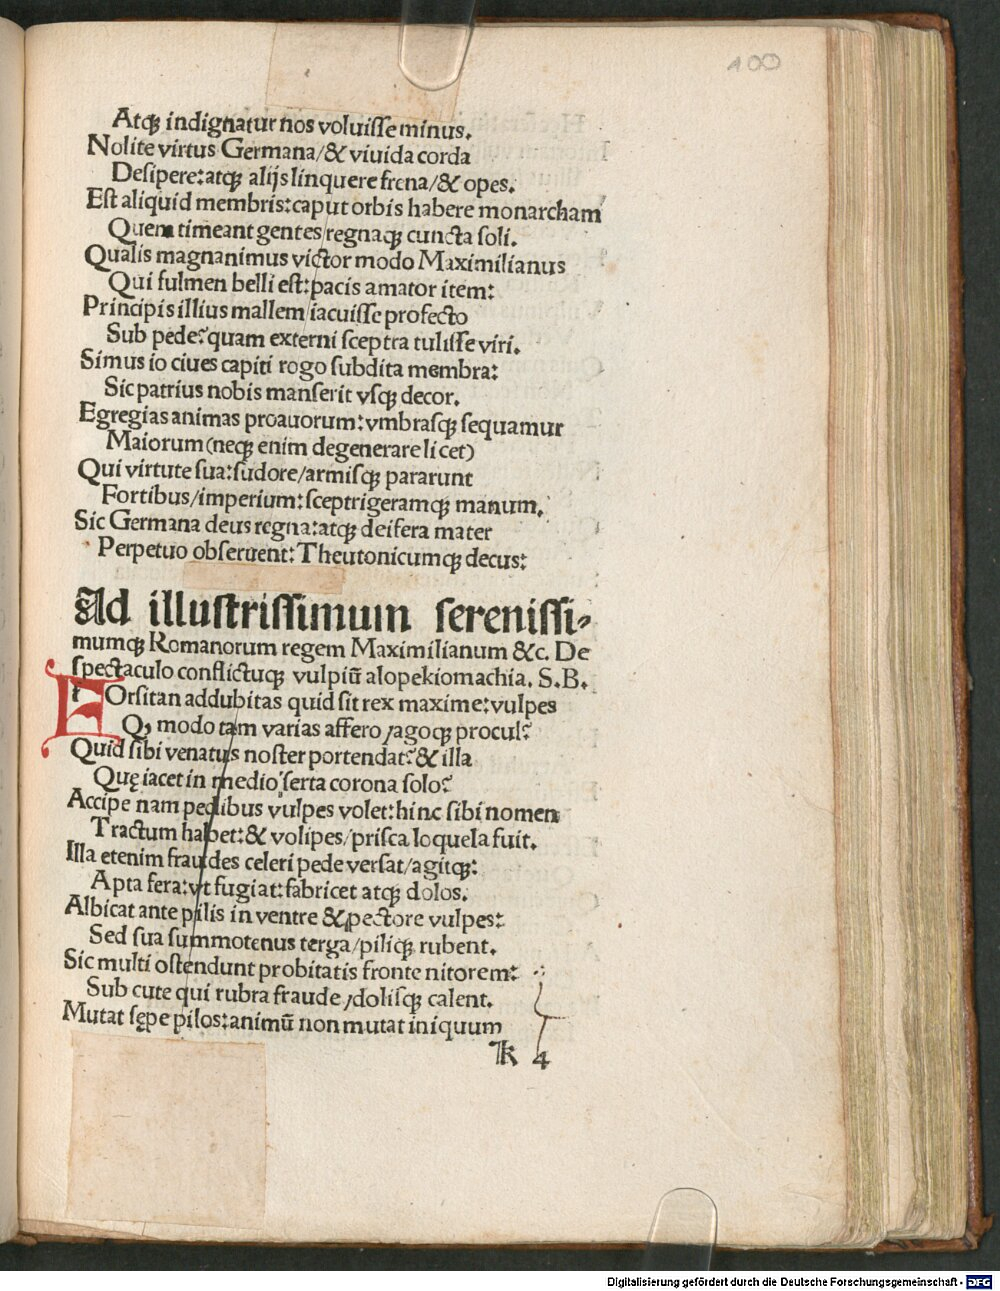 100
Atqꝫ indignatur nos voluiſſe minus.
Nolite virtus Germana/& viuida corda
Deſipere:atqꝫ alijs linquere frena/& opes.
Eſt aliquid membris:caput orbis habere monarcham
Quem timeant gentes/regnaqꝫ cuncta ſoli.
Qualis magnanimus victor modo Maximilianus
Qui fulmen belli eſt:pacis amator item:
Principis illius mallem iacuiſſe profecto
Sub pede?quam externi ſceptra tuliſſe viri.
Simus io ciues capiti rogo ſubdita membra:
Sic patrius nobis manſerit vſqꝫ decor.
Egregias animas proauorum:vmbraſqꝫ ſequamur
Maiorum(neqꝫ enim degenerare licet)
Qui virtute ſua:ſudore/armiſqꝫ pararunt
Fortibus/imperium:ſceptrigeramqꝫ manum.
Sic Germana deus regna:atqꝫ deifera mater
Perpetuo obſeruent:Theutonicumqꝫ decus:
Ad illuſtriſſimum ſereniſſi-
mumqꝫ Romanorum regem Maximilianum &c. De
ſpectaculo conflictuqꝫ vulpiū alopekiomachia. S.B.
FOrſitan addubitas quid ſit rex maxime:vulpes
Qꝫ modo tam varias affero/agoqꝫ procul?
Quid ſibi venatus noſter portendat?& illa
Quę iacet in medio ſerta corona ſolo?
Accipe nam pedibus vulpes volet:hinc ſibi nomen
Tractum habet:& volipes/priſca loquela fuit.
Illa etenim fraudes celeri pede verſat/agitqꝫ:
Apta fera:vt fugiat:fabricet atqꝫ dolos.
Albicat ante pilis in ventre & pectore vulpes:
Sed ſua ſummotenus terga/piliqꝫ rubent.
Sic multi oſtendunt probitatis fronte nitorem:
Sub cute qui rubra fraude/doliſqꝫ calent.
Mutat ſępe pilos:animū non mutat iniquum
k 4
Digitalisierung gefördert durch die Deutsche Forschungsgemeinschaft - DFG